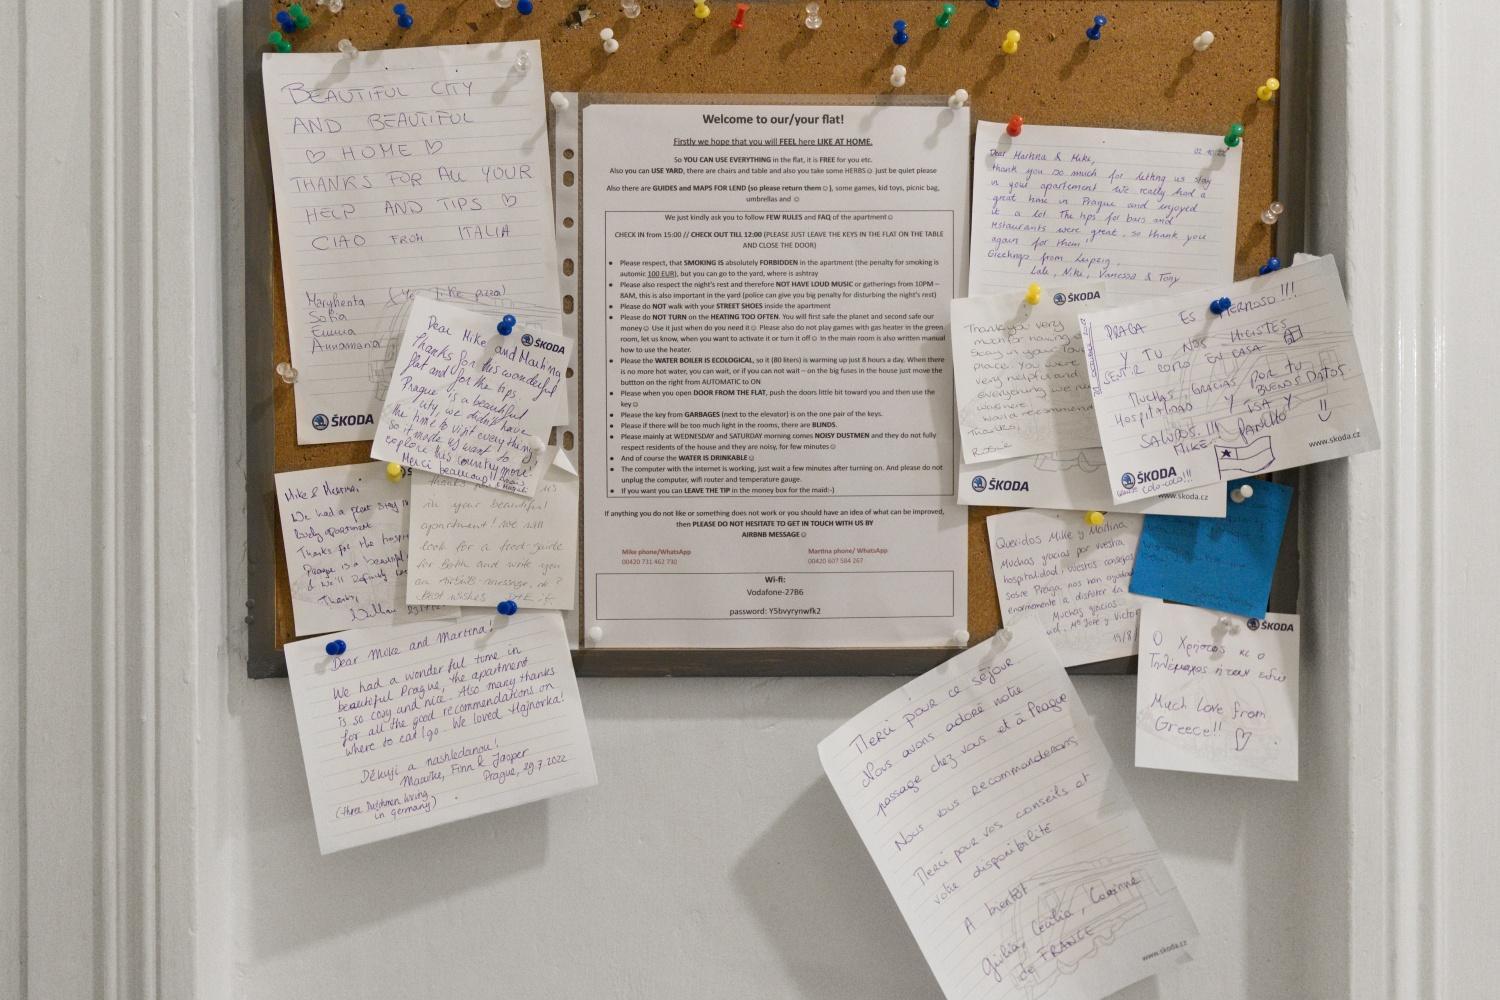 BEAUTIFUL CITY
AND BEAUTIFUL
♡ HOME ♡
THANKS FOR ALL YOUR
HELP AND TIPS ♡
CIAO FROM ITALIA
Margherita (Yes, like pizza)
Sofia
Emma
Annamaria
ŠKODA
Dear Mike and Martina
ŠKODA
thanks for this wonderful
flat and for the tips.
Prague is a beautiful
city, we didn't have
the time to visit everything,
so it made us want to
explore this country more!
Merci beaucoup!!
Mike & Martina,
We had a great stay in
lovely apartment.
Thanks for the
Prague is a beautiful
& we'll definitely
Thanks,
in your beautiful
apartment! We will
look for a food-guide
for Both and write you
an AirBnB-message, ok?
best wishes
Dear Mike and Martina!
We had a wonderful time in
beautiful Prague, the apartment
is so cosy and nice. Also many thanks
for all the good recommendations on
where to eat/go. We loved Hajnovka!
Děkuji a nashledanou!
Maarike, Finn & Jasper
Prague, 29.7.2022
(three Dutchmen living
in Germany)
Welcome to our/your flat!
Firstly we hope that you will FEEL here LIKE AT HOME.
So YOU CAN USE EVERYTHING in the flat, it is FREE for you etc.
Also you can USE YARD, there are chairs and table and also you take some HERBS☺ just be quiet please
Also there are GUIDES and MAPS FOR LEND (so please return them ☺), some games, kid toys, picnic bag,
umbrellas and ☺
We just kindly ask you to follow FEW RULES and FAQ of the apartment☺
CHECK IN from 15:00 // CHECK OUT TILL 12:00 (PLEASE JUST LEAVE THE KEYS IN THE FLAT ON THE TABLE
AND CLOSE THE DOOR)
• Please respect, that SMOKING IS absolutely FORBIDDEN in the apartment (the penalty for smoking is
automic 100 EUR), but you can go to the yard, where is ashtray
• Please also respect the night's rest and therefore NOT HAVE LOUD MUSIC or gatherings from 10PM –
8AM, this is also important in the yard (police can give you big penalty for disturbing the night's rest)
• Please do NOT walk with your STREET SHOES inside the apartment
• Please do NOT TURN on the HEATING TOO OFTEN. You will first safe the planet and second safe our
money☺ Use it just when do you need it☺ Please also do not play games with gas heater in the green
room, let us know, when you want to activate it or turn it off☺ In the main room is also written manual
how to use the heater.
• Please the WATER BOILER IS ECOLOGICAL, so it (80 liters) is warming up just 8 hours a day. When there
is no more hot water, you can wait, or if you can not wait – on the big fuses in the house just move the
buttton on the right from AUTOMATIC to ON
• Please when you open DOOR FROM THE FLAT, push the doors little bit toward you and then use the
key☺
• Please the key from GARBAGES (next to the elevator) is on the one pair of the keys.
• Please if there will be too much light in the rooms, there are BLINDS.
• Please mainly at WEDNESDAY and SATURDAY morning comes NOISY DUSTMEN and they do not fully
respect residents of the house and they are noisy, for few minutes☺
• And of course the WATER IS DRINKABLE☺
• The computer with the internet is working, just wait a few minutes after turning on. And please do not
unplug the computer, wifi router and temperature gauge.
• If you want you can LEAVE THE TIP in the money box for the maid:-)
If anything you do not like or something does not work or you should have an idea of what can be improved,
then PLEASE DO NOT HESITATE TO GET IN TOUCH WITH US BY
AIRBNB MESSAGE☺
Mike phone/WhatsApp
00420 731 462 730
Martina phone/ WhatsApp
00420 607 584 267
Wi-fi:
Vodafone-27B6
password: Y5bvyrynwfk2
Dear Martina & Mike,
thank you so much for letting us stay
in your apartement. We really had a
great time in Prague and enjoyed
it a lot. The tips for bars and
restaurants were great, so thank you
again for them!
Greetings from Leipzig,
Lale, Nike, Vanessa & Tony
ŠKODA
Thank you very
much for having
Stay in your
place. You were
very helpful and
everything we
was here!
would recommend
Thanks,
ŠKODA
www.skoda.cz
PRAGA ES HERMOSO!!!
Y TU NOS HICISTES
SENTIR COMO EN CASA
MUCHAS GRACIAS POR TU
HOSPITALIDAD Y BUENOS DATOS.
SALUDOS!!! ISA Y
MIKE PANCHO
www.skoda.cz
ŠKODA
Queridos Mike y Martina
Muchas gracias por vuestra
hospitalidad, vuestros consejos
sobre Praga nos han ayudado
enormemente a disfrutar
Muchas gracias.
Mª José y Victor
19/8/
ŠKODA
Ο Χρήστος κι ο
Τηλέμαχος ήταν εδώ
Much love from
Greece!! ♡
Merci pour ce séjour
Nous avons adoré notre
passage chez vous et à Prague
Nous vous recommanderons
Merci pour vos conseils et
votre disponibilité
A bientôt
Giulia, Cécilia, Corinne
de FRANCE
www.skoda.cz